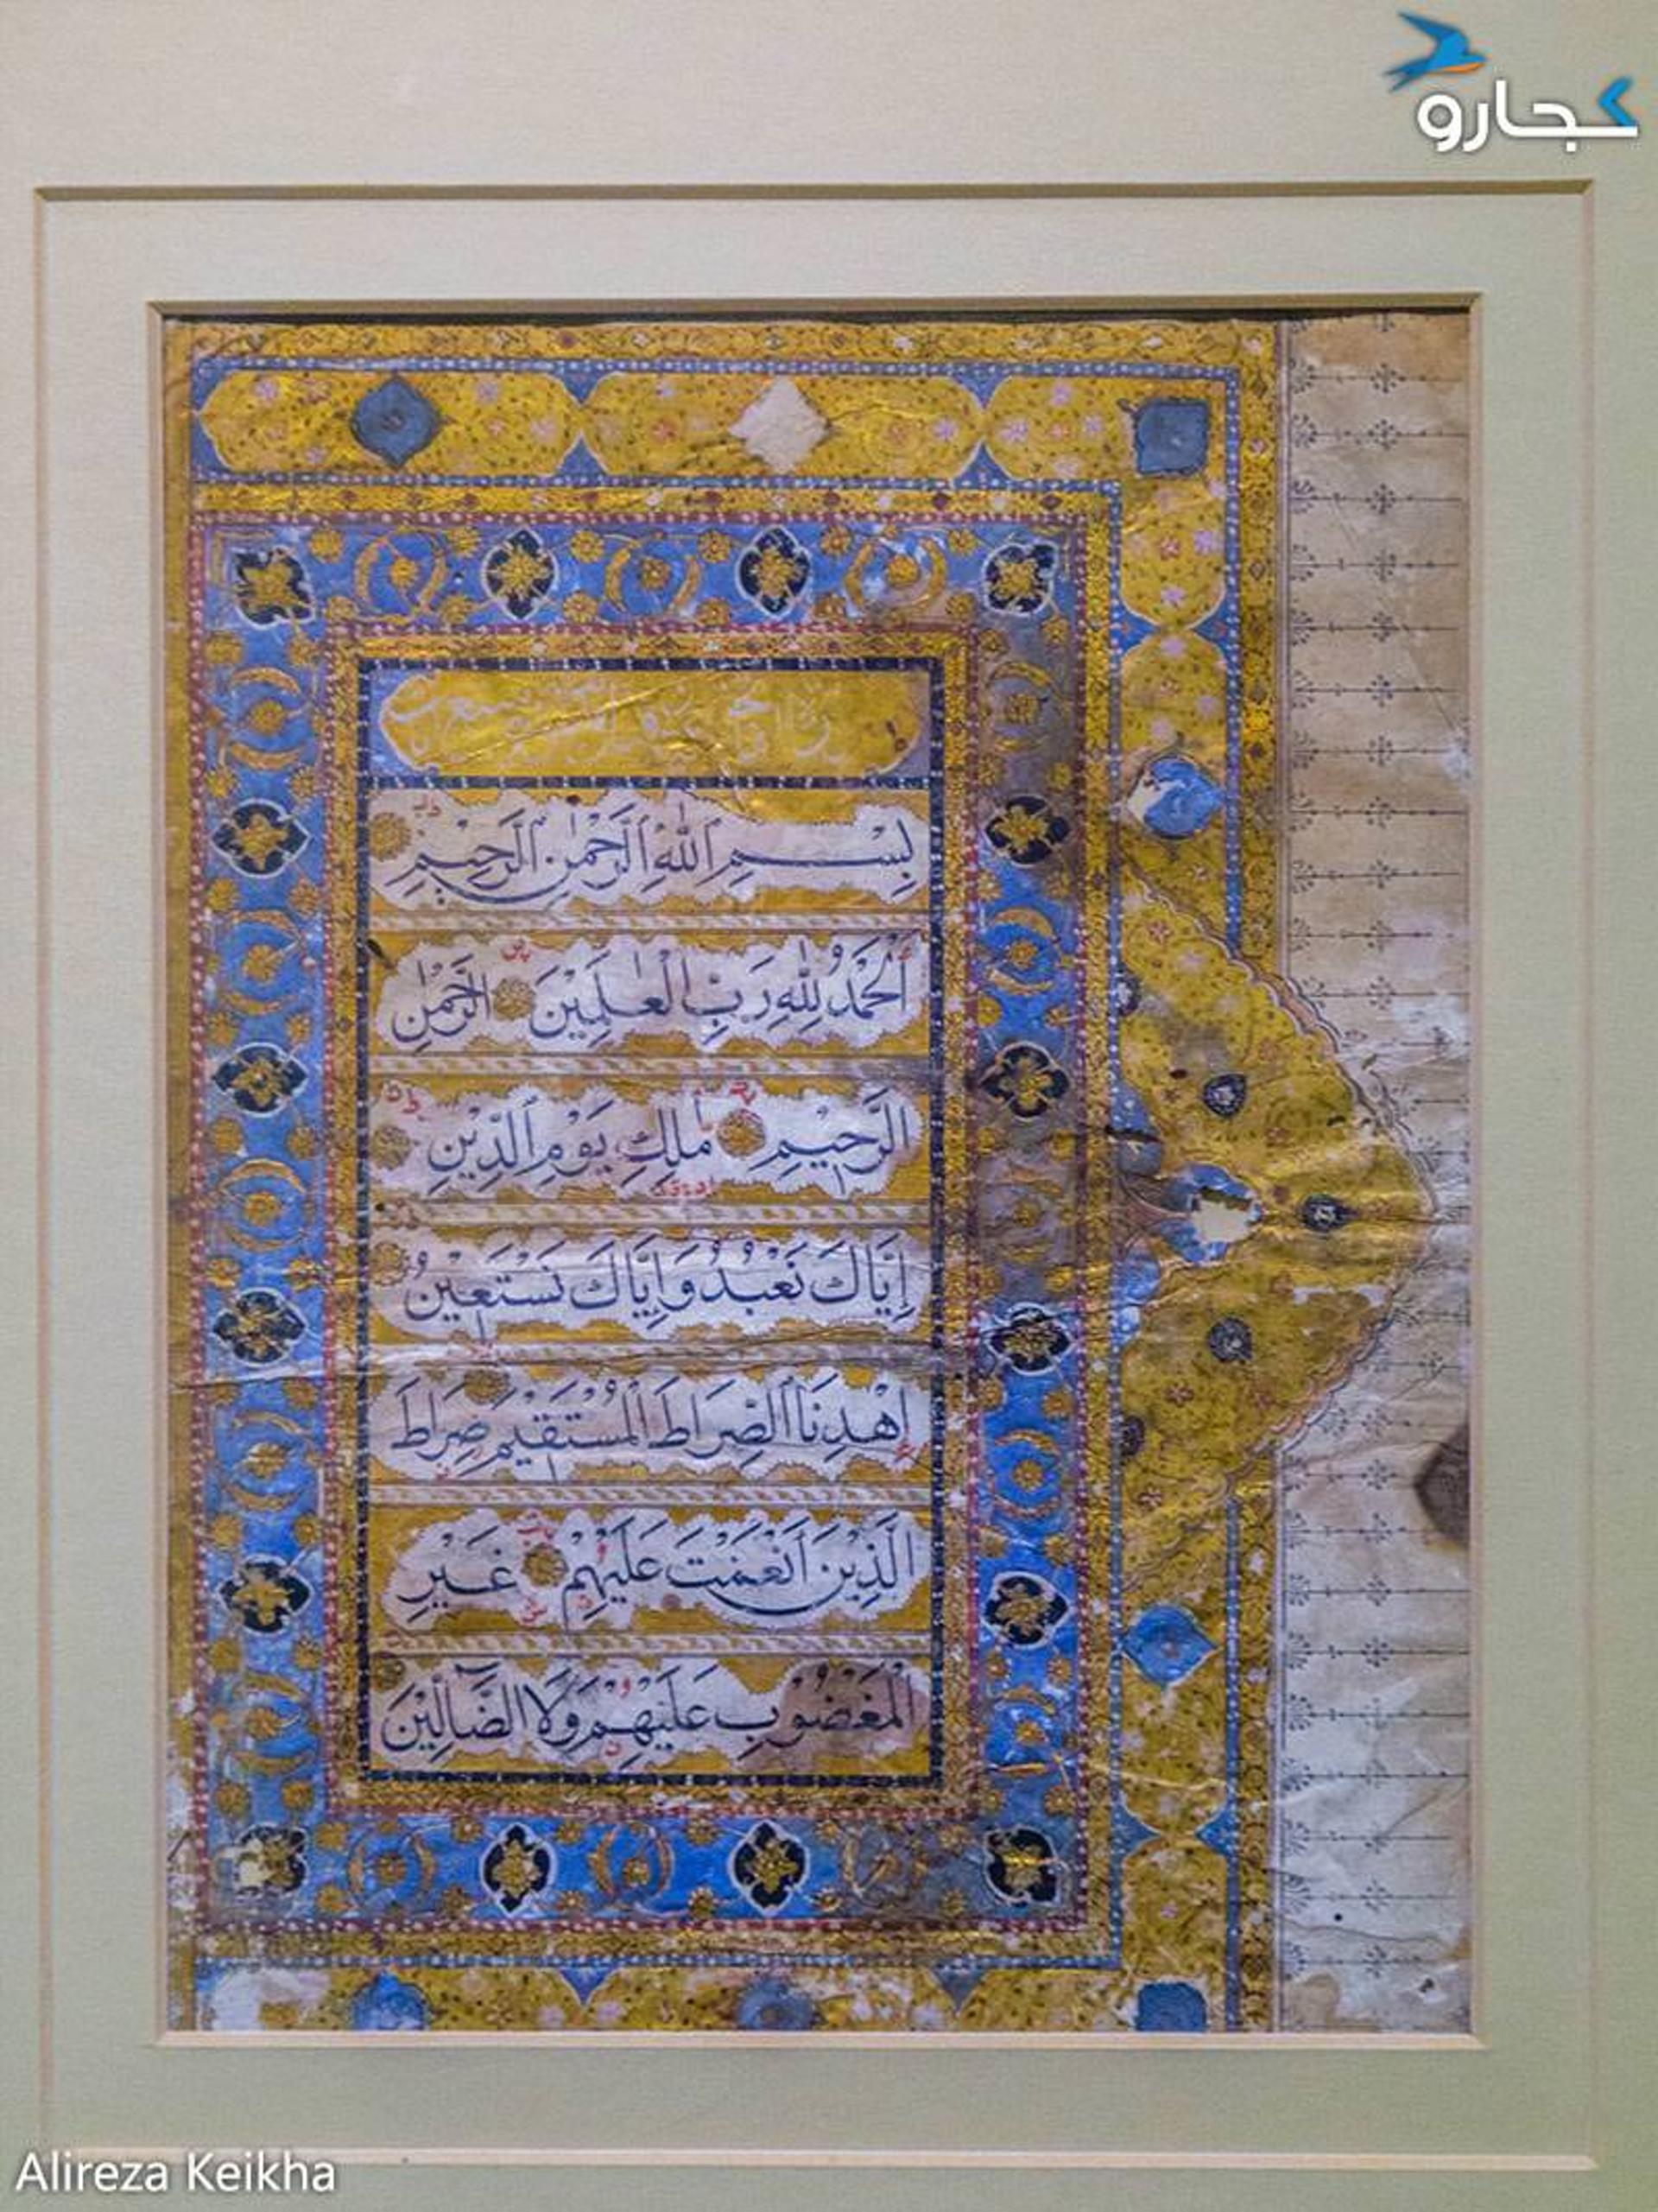 کجارو
بِسْمِ ٱللّٰهِ ٱلرَّحْمٰنِ ٱلرَّحِيْمِ
اَلْحَمْدُ لِلّٰهِ رَبِّ الْعٰلَمِيْنَ الرَّحْمٰنِ
الرَّحِيْمِ مٰلِكِ يَوْمِ الدِّيْنِ
اِيَّاكَ نَعْبُدُ وَاِيَّاكَ نَسْتَعِيْنُ
اِهْدِنَا الصِّرَاطَ الْمُسْتَقِيْمَ صِرَاطَ
الَّذِيْنَ اَنْعَمْتَ عَلَيْهِمْ غَيْرِ
الْمَغْضُوْبِ عَلَيْهِمْ وَلَا الضَّآلِّيْنَ
Alireza Keikha